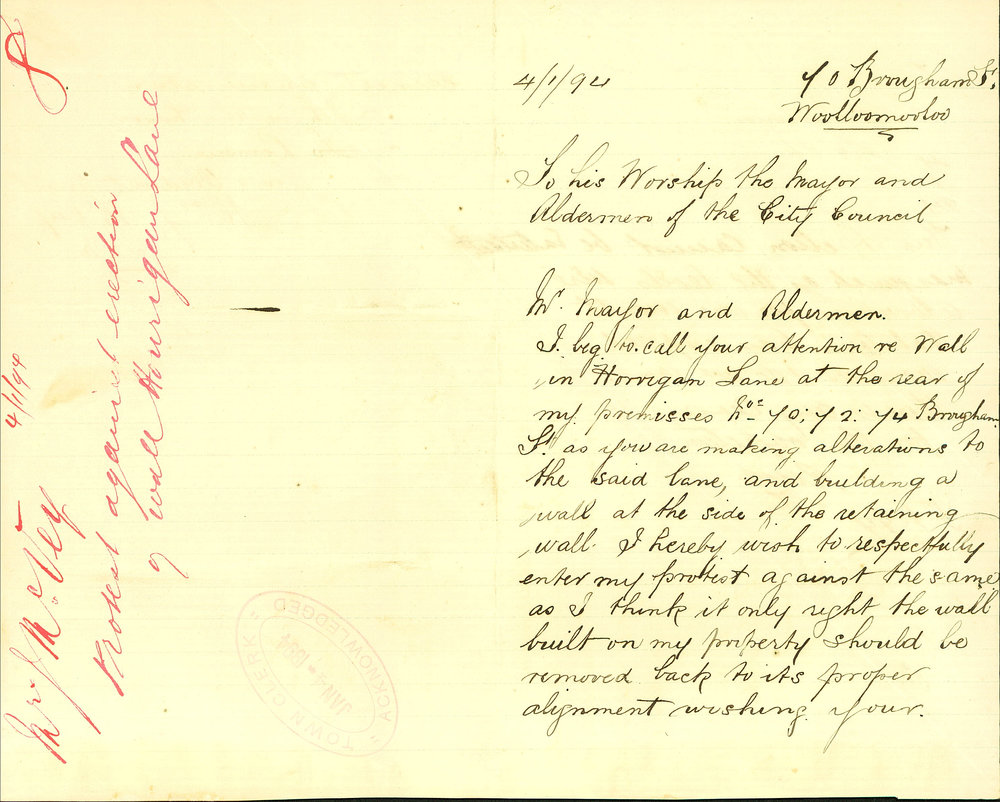 8
Mrs J McVey 4/1/94
Protest against erection
of wall Hourigan Lane
"TOWN CLERK"
JAN 4 1894
"ACKNOWLEDGED"
4/1/94
70 Brougham St.
Woolloomooloo
To his Worship the Mayor and
Aldermen of the City Council
Mr. Mayor and Aldermen.
I beg to call your attention re Wall
in Horrigan Lane at the rear of
my premisses Nos 70; 72: 74 Brougham
St. as you are making alterations to
the said lane, and building a
wall at the side of the retaining
wall. I hereby wish to respectfully
enter my protest against the same
as I think it only right the wall
built on my property should be
removed back to its proper
alignment wishing your.